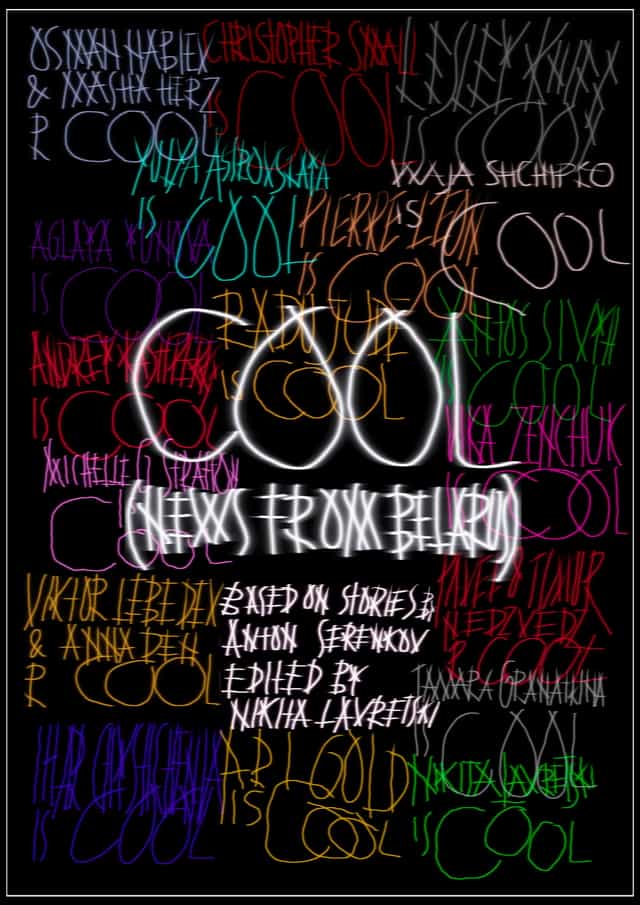 OSMAN NABIEV
& MASHA HERZ
R COOL
CHRISTOPHER SMALL
IS COOL
LESLEY
IS COOL
YULIYA ASTROVSKAYA
IS COOL
MAJA SHCHIPKO
IS COOL
AGLAYA
IS COOL
PIERRE LÉON
IS COOL
RADU JUDE
IS COOL
IS COOL
ANDREY
IS COOL
COOL
VIKA ZENCHUK
IS COOL
MICHELLE
IS COOL
(NEWS FROM BELARUS)
VIKTOR LEBEDEV
& ANNA DEN
R COOL
BASED ON STORIES BY
ANTON SERENKOV
EDITED BY
NIKITA LAVRETSKI
PAVEL & TIMUR
R COOL
TAMARA GRANATKINA
IS COOL
IHAR
IS COOL
ARI GOLD
IS COOL
NIKITA LAVRETSKI
IS COOL